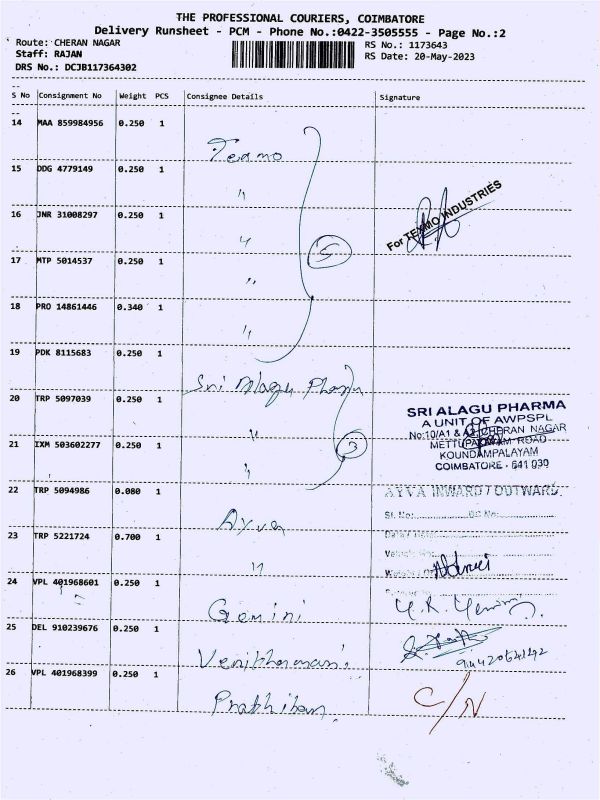 THE PROFESSIONAL COURIERS, COIMBATORE
Delivery Runsheet - PCM - Phone No.:0422-3505555 - Page No.:2
Route: CHERAN NAGAR RS No.: 1173643
Staff: RAJAN RS Date: 20-May-2023
DRS No.: DCJB117364302
S No Consignment No Weight PCS Consignee Details Signature
14 MAA 859984956 0.250 1 Texmo
15 DDG 4779149 0.250 1 "
16 JNR 31008297 0.250 1 "
For TEXMO INDUSTRIES
5
17 MTP 5014537 0.250 1 "
18 PRO 14861446 0.340 1 "
19 PDK 8115683 0.250 1 Sri Alagu Pharma
20 TRP 5097039 0.250 1 "
SRI ALAGU PHARMA
A UNIT OF AWPSPL
No:10/A1 & A2, CHERAN NAGAR
METTUPALAYAM ROAD
KOUNDAMPALAYAM
COIMBATORE - 641 030
21 IXM 503602277 0.250 1 "
3
22 TRP 5094986 0.080 1 Ayva
AYVA INWARD / OUTWARD
Sl. No:
23 TRP 5221724 0.700 1 "
24 VPL 401968601 0.250 1 Gemini
25 DEL 910239676 0.250 1
26 VPL 401968399 0.250 1
C/N